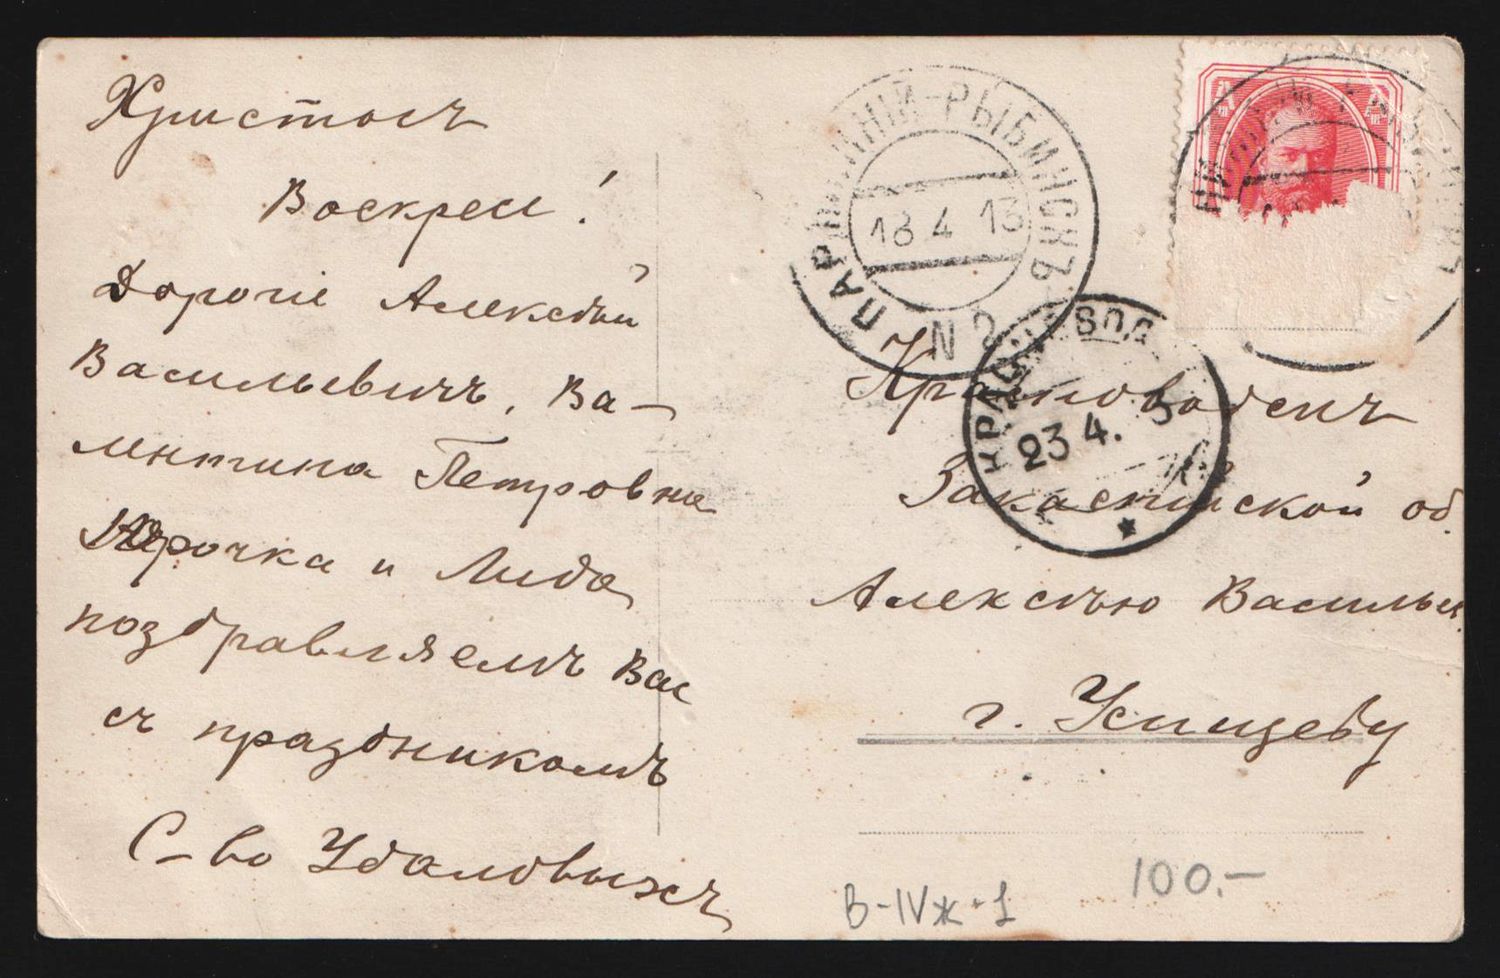 Христосъ
Воскресе!
Дорогіе Алексѣй
Васильевичъ, Ва-
лентина Петровна
Юрочка и Лида
поздравляемъ Вас
съ праздникомъ
С-во Удаловыхъ
ПАР НІЙ-РЫБИНСКЪ
18 4 13
N 2
4 4
КРАСН ВОД
23 4. 3
Красноводскъ
Закаспійской об.
Алексѣю Василье
г. Усищеву
В-IVж-1
100.-